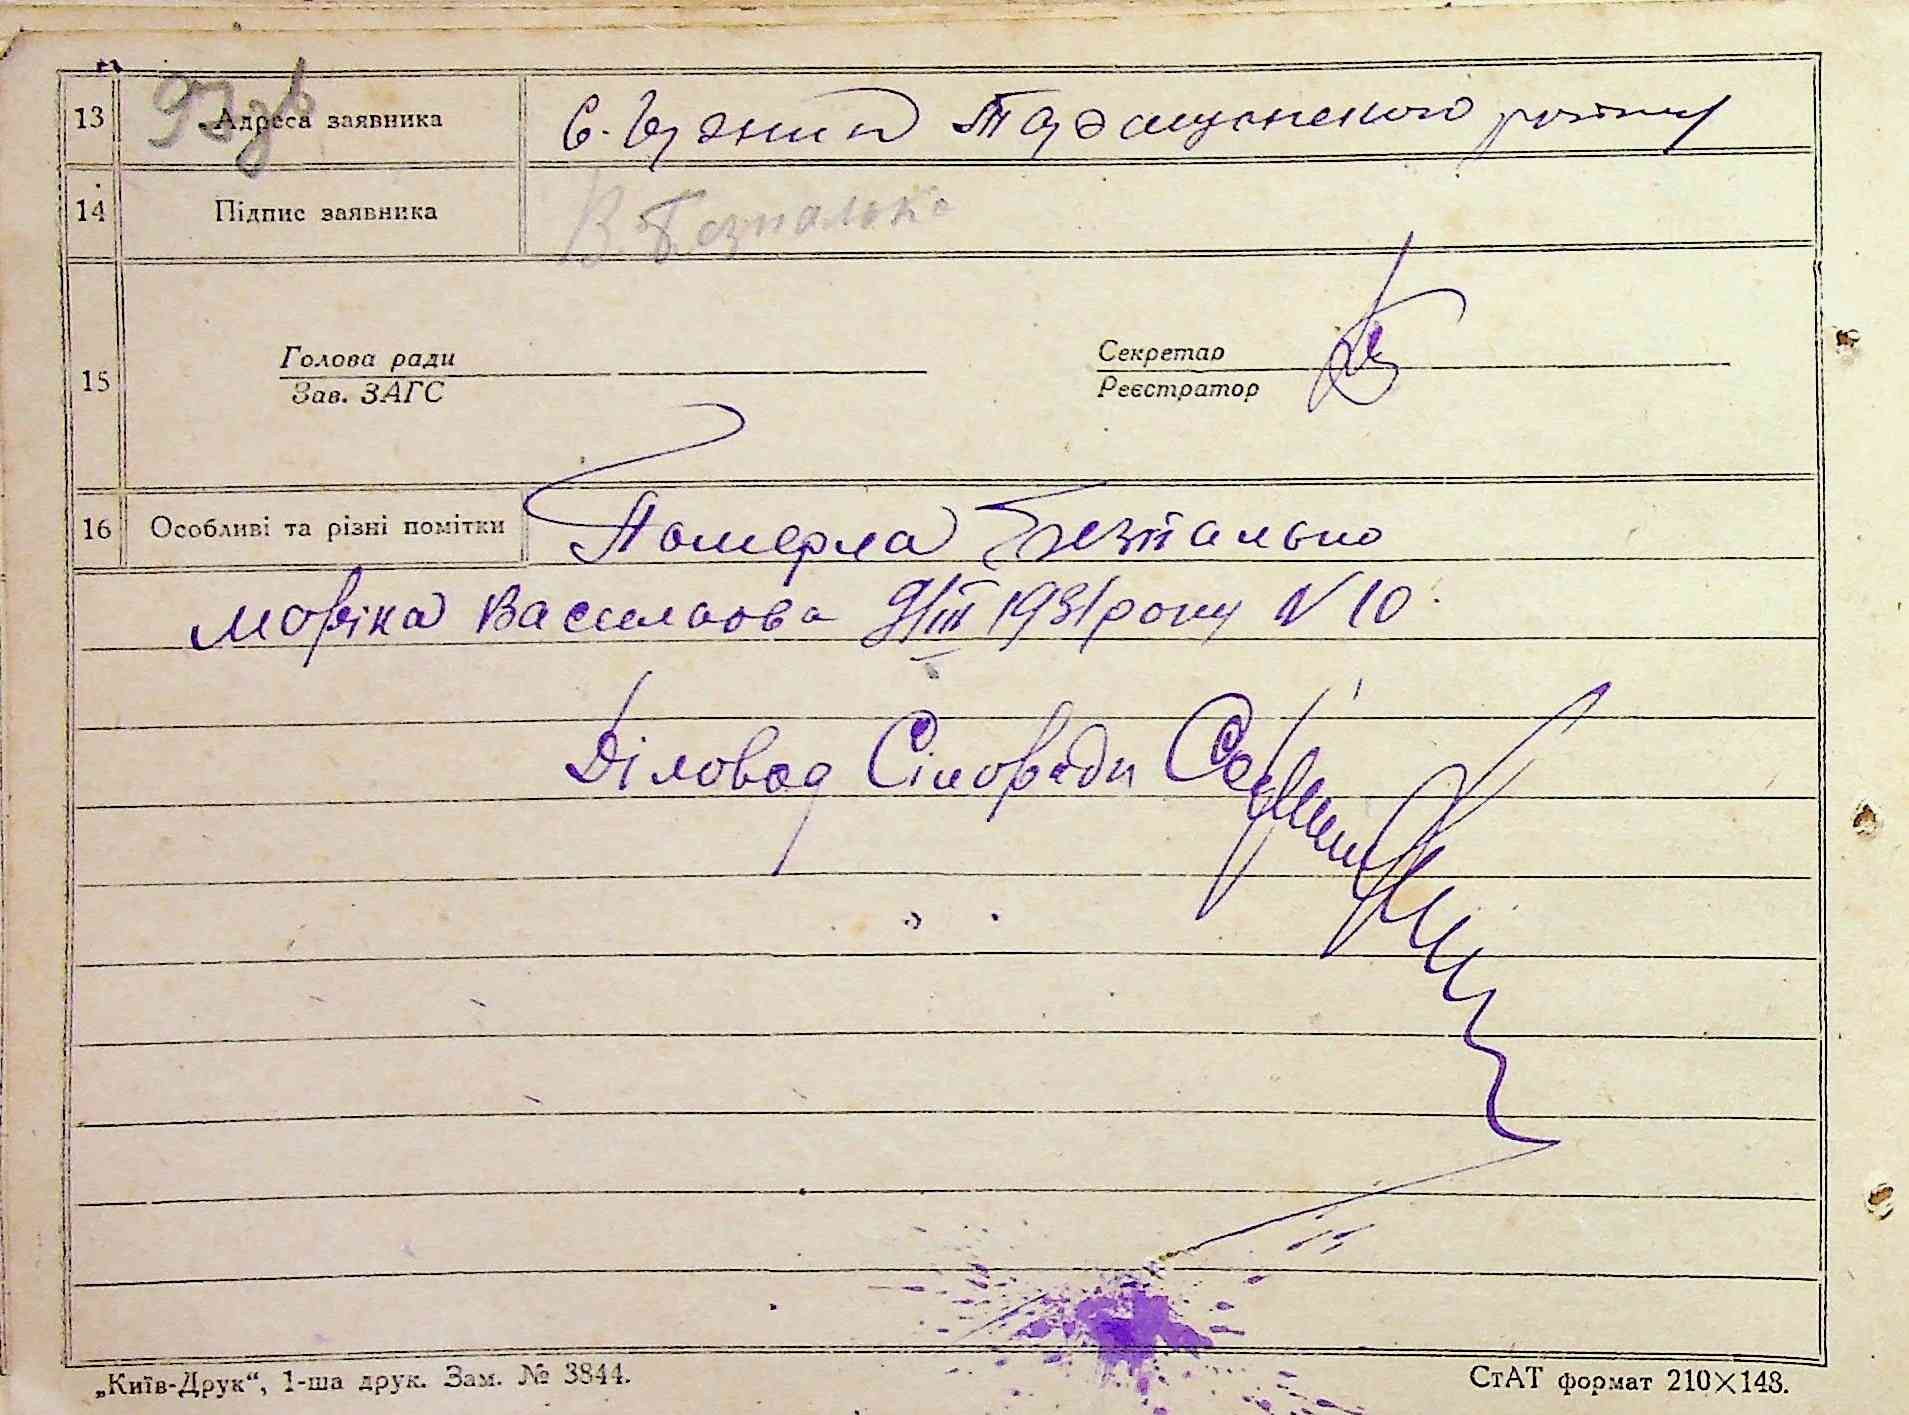 93 зв
13 Адреса заявника с. Кужнин Таращанского району
14 Підпис заявника В. Безпалько
15 Голова ради Секретар
Зав. ЗАГС Реєстратор
16 Особливі та різні помітки Померла Безпалько
Моріна Василіова 9/III 1931 року N 10.
Діловод Сілоради
„Київ-Друк“, 1-ша друк. Зам. № 3844. СтАТ формат 210×148.